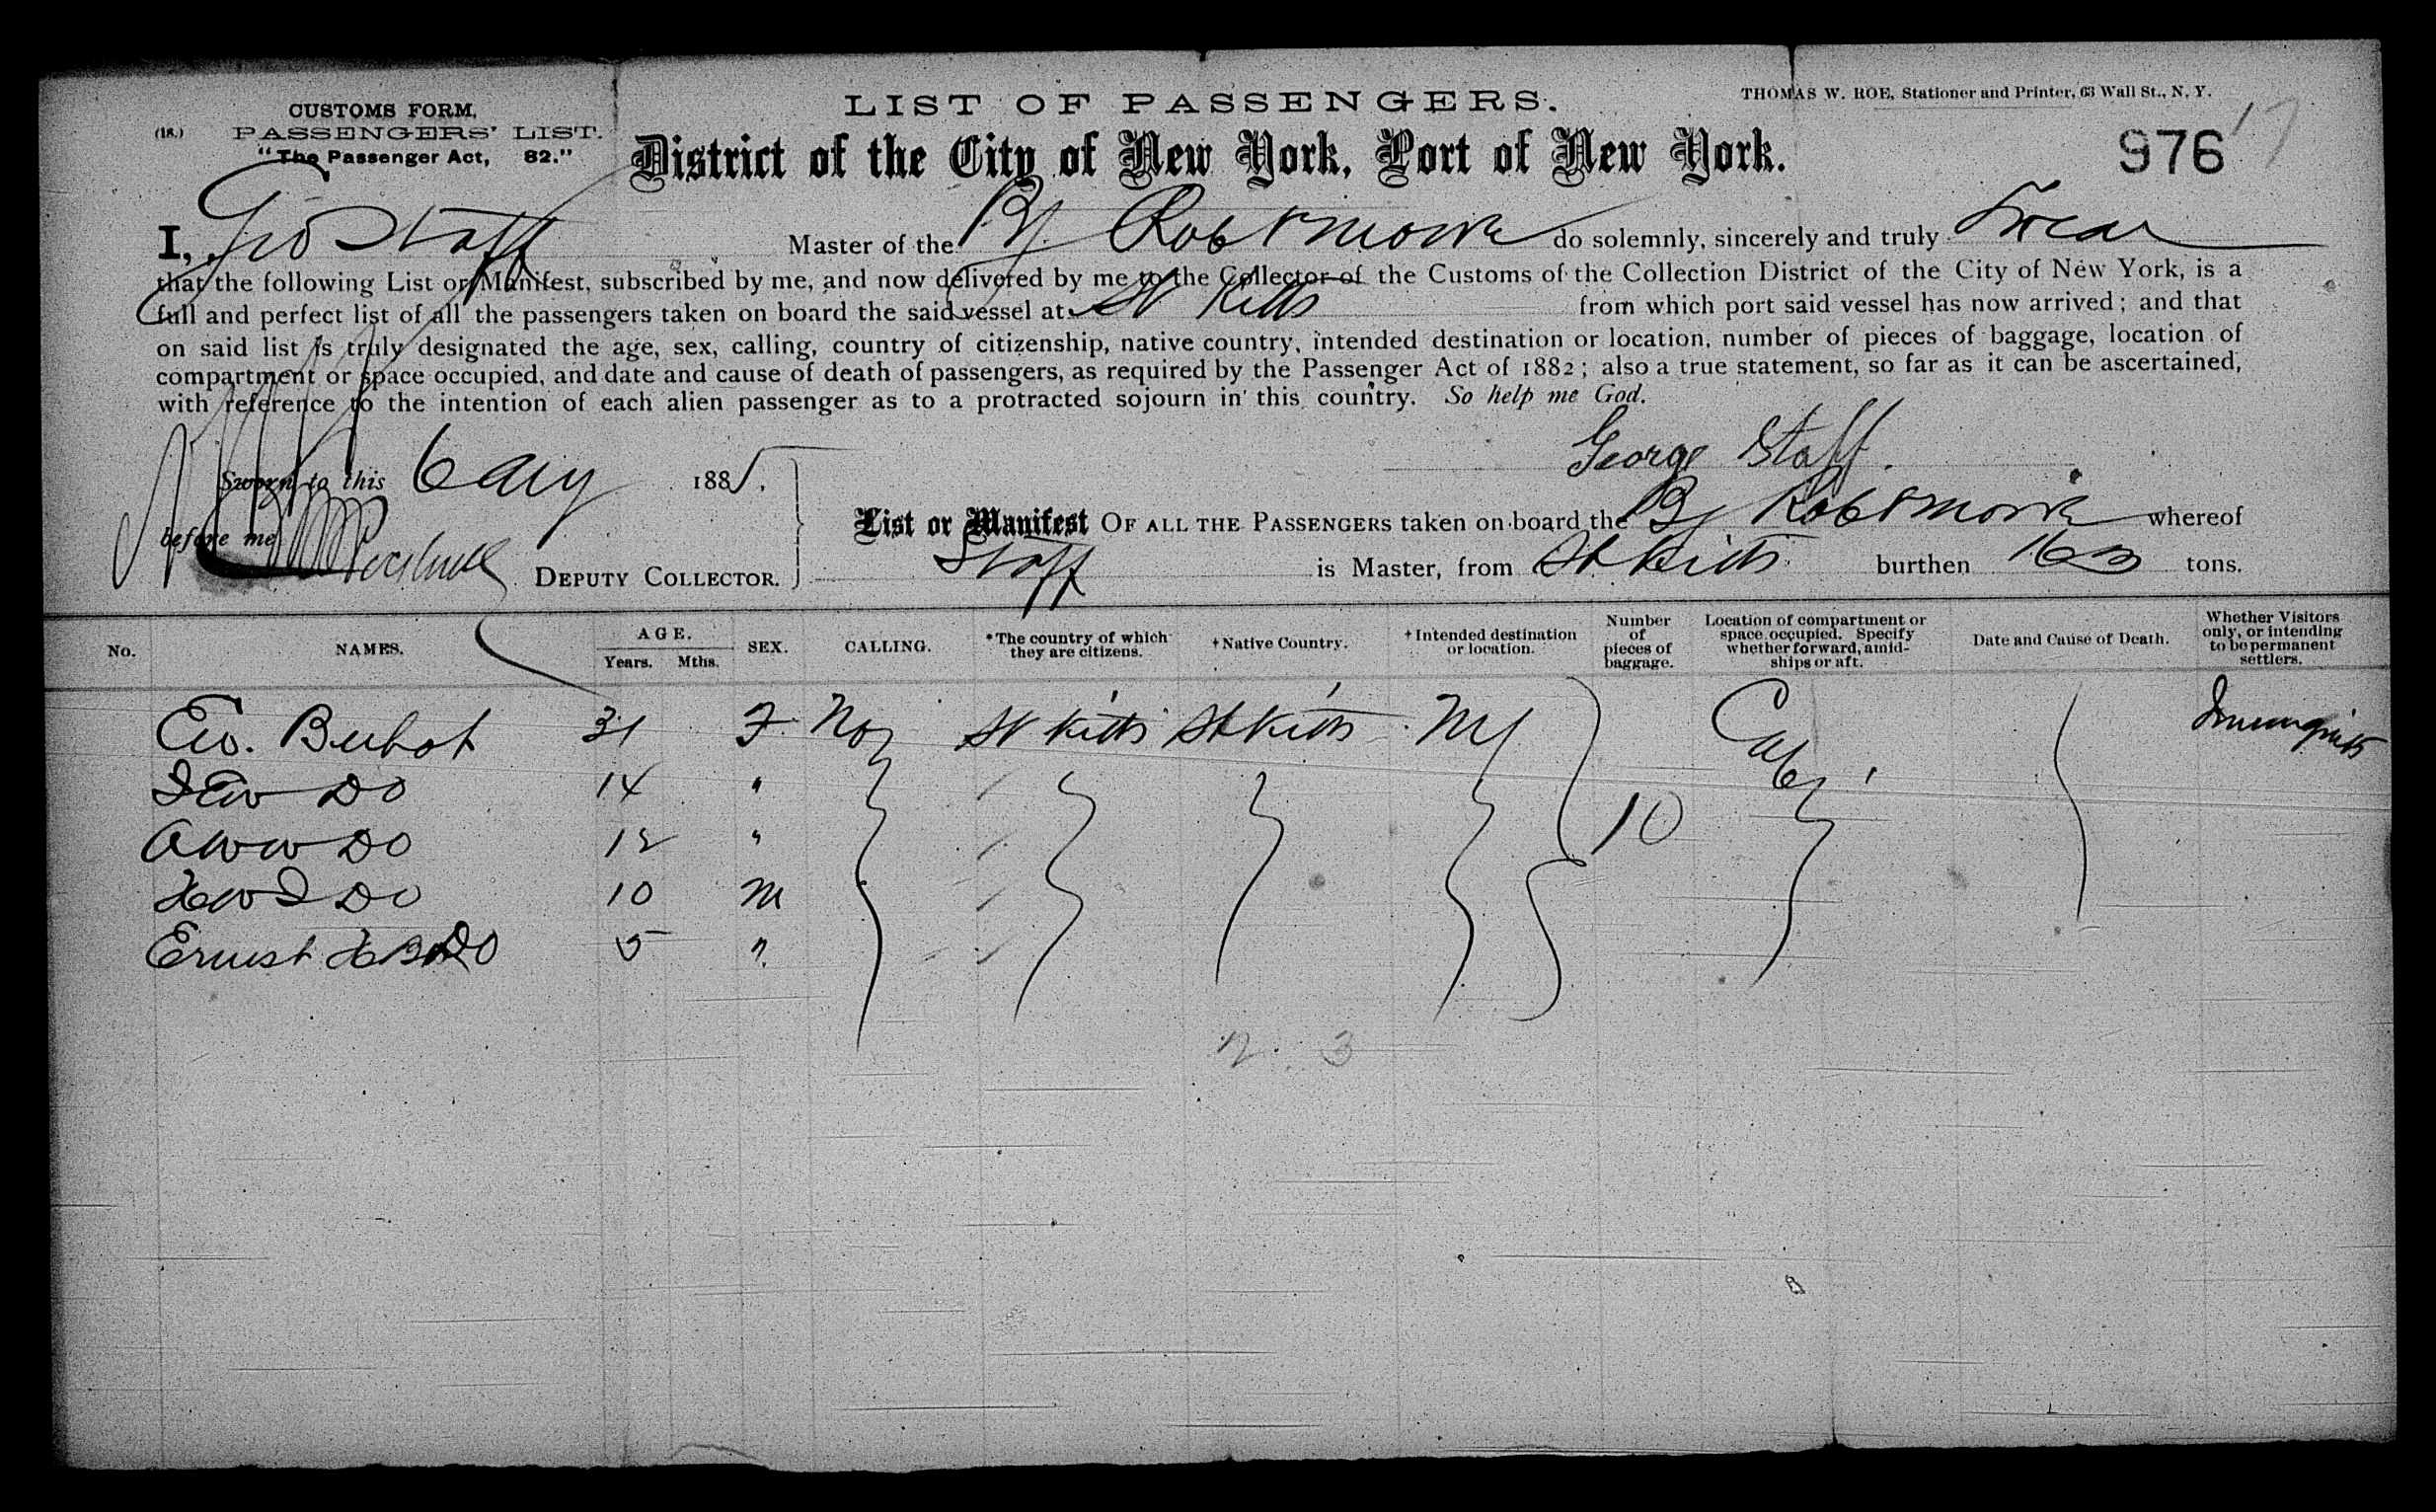 CUSTOMS FORM.
(18.) PASSENGERS' LIST.
"The Passenger Act, 82."
LIST OF PASSENGERS.
THOMAS W. ROE, Stationer and Printer, 63 Wall St., N. Y.
District of the City of New York, Port of New York.
976
17
I, Geo Staff Master of the Bg do solemnly, sincerely and truly Swear
that the following List or Manifest, subscribed by me, and now delivered by me to the Collector of the Customs of the Collection District of the City of New York, is a
full and perfect list of all the passengers taken on board the said vessel at St Kitts from which port said vessel has now arrived; and that
on said list is truly designated the age, sex, calling, country of citizenship, native country, intended destination or location, number of pieces of baggage, location of
compartment or space occupied, and date and cause of death of passengers, as required by the Passenger Act of 1882; also a true statement, so far as it can be ascertained,
with reference to the intention of each alien passenger as to a protracted sojourn in this country. So help me God.
George Staff.
Sworn to this 6 Aug 1885.
before me
DEPUTY COLLECTOR.
List or Manifest OF ALL THE PASSENGERS taken on board the Bg whereof
Staff is Master, from St Kitts burthen tons.
No. NAMES. AGE. Years. Mths. SEX. CALLING. *The country of which they are citizens. †Native Country. †Intended destination or location. Number of pieces of baggage. Location of compartment or space occupied. Specify whether forward, amidships or aft. Date and Cause of Death. Whether Visitors only, or intending to be permanent settlers.
31 F St Kitts St Kitts NY
Do 14 "
Do 12 " 10
Do 10 M
Ernest Do 5 "
2 3